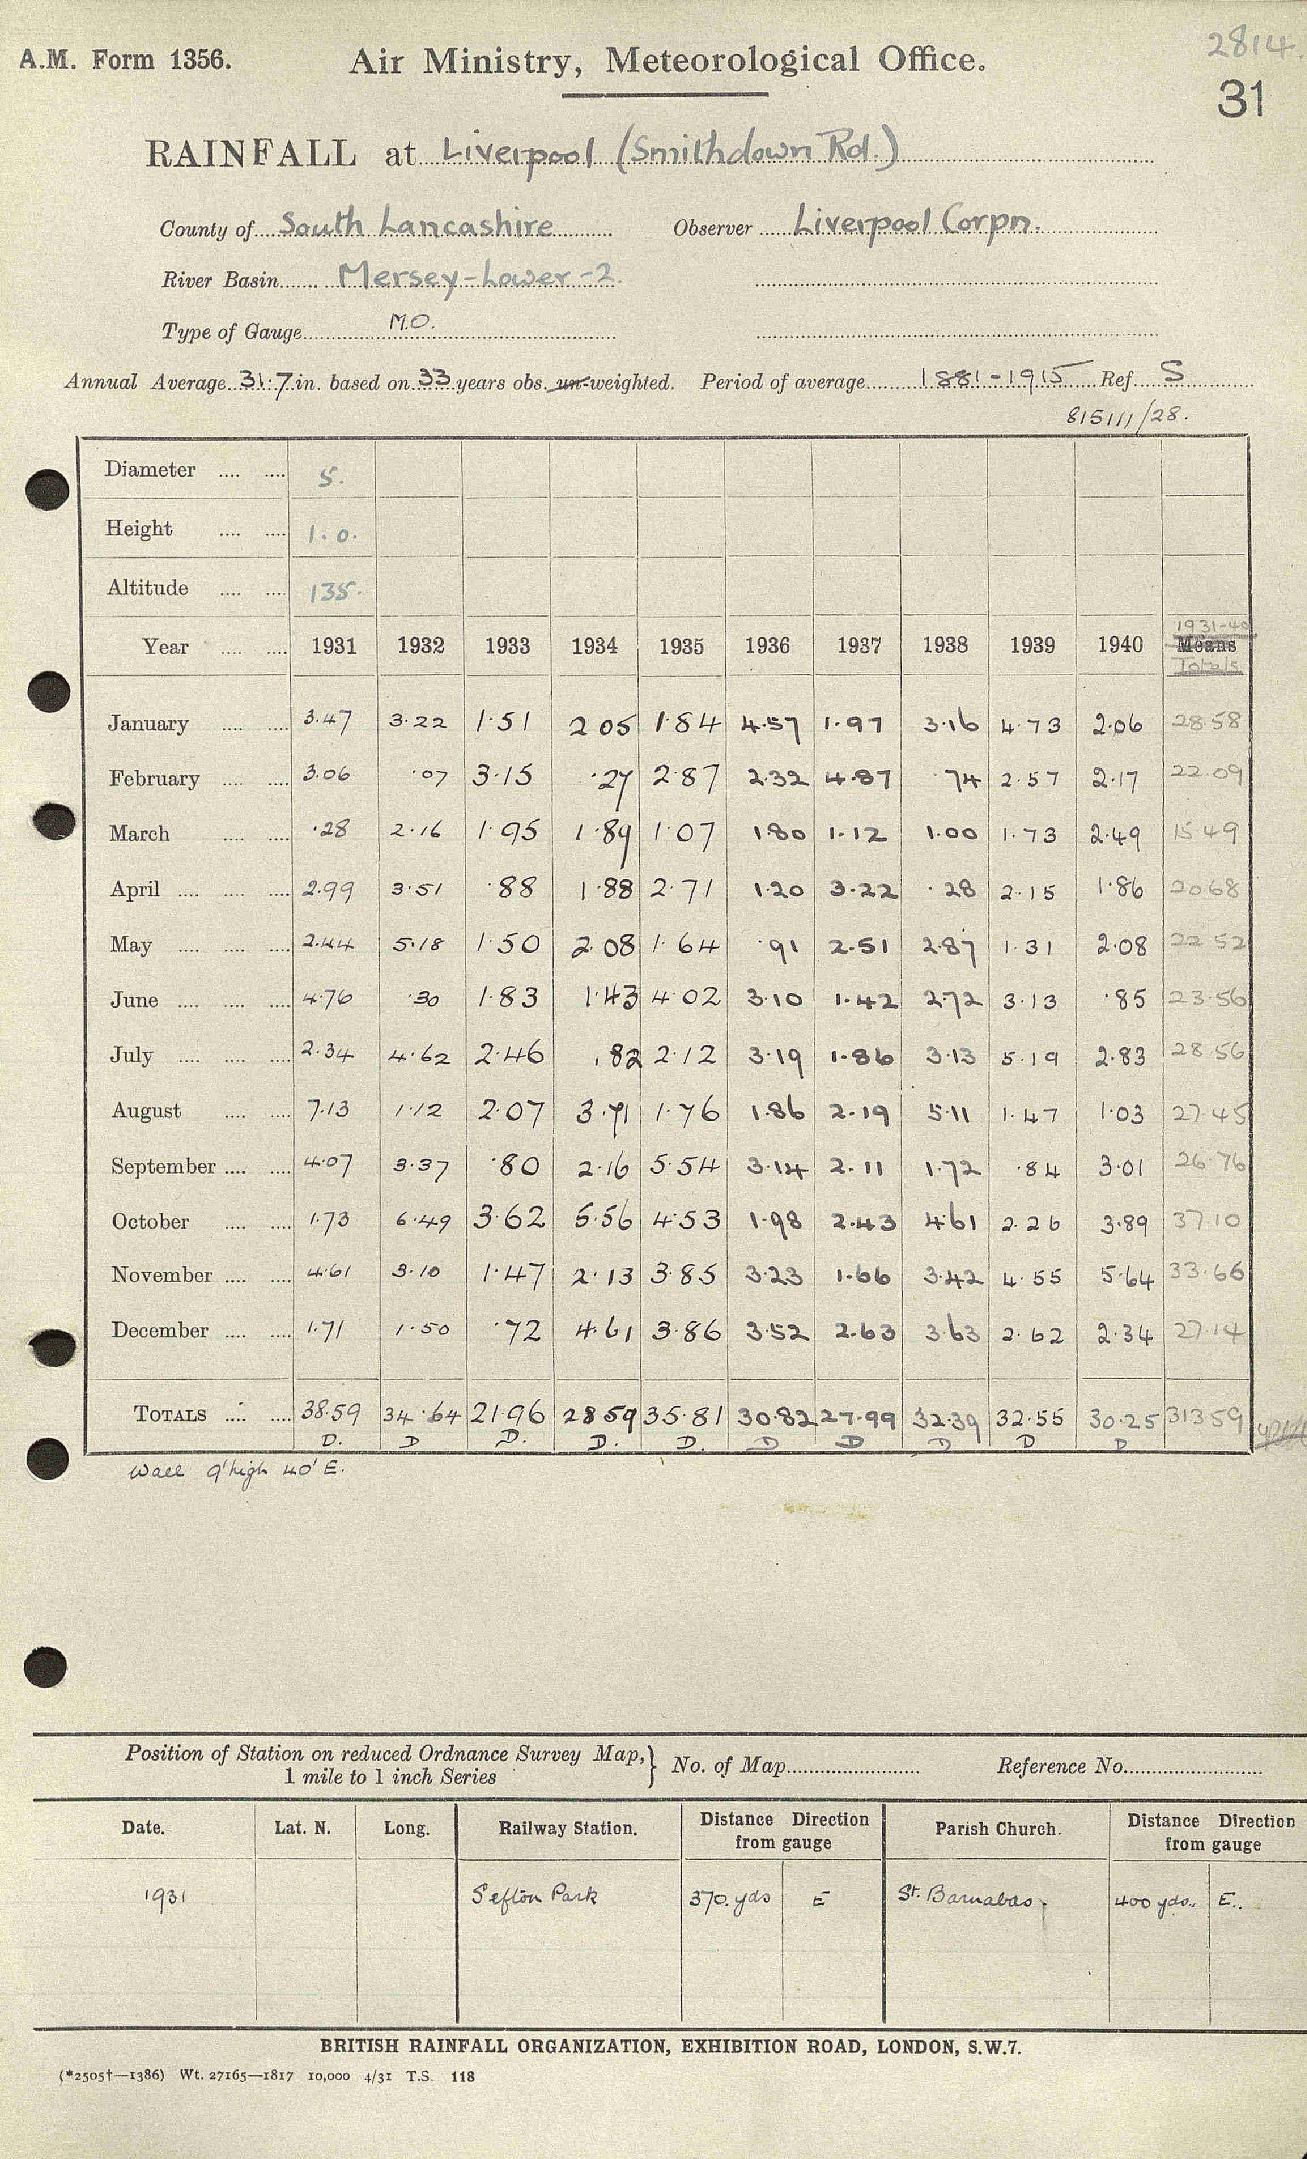 2814.
A.M. Form 1356. Air Ministry, Meteorological Office.
31
RAINFALL at Liverpool (Smithdown Rd.)
County of South Lancashire Observer Liverpool Corpn.
River Basin Mersey-Lower-2.
Type of Gauge M.O.
Annual Average 31.7 in. based on 33 years obs. un-weighted. Period of average 1881-1915 Ref. S
815111/28.
Diameter 5.
Height 1.0.
Altitude 135.
1931-40
Year 1931 1932 1933 1934 1935 1936 1937 1938 1939 1940 Means
Totals
January 3.47 3.22 1.51 2 05 1.84 4.57 1.97 3.16 4.73 2.06 28.58
February 3.06 .07 3.15 .27 2.87 2.32 4.87 .74 2.57 2.17 22.09
March .28 2.16 1.95 1.89 1.07 1.80 1.12 1.00 1.73 2.49 15.49
April 2.99 3.51 .88 1.88 2.71 1.20 3.22 .28 2.15 1.86 20.68
May 2.44 5.18 1.50 2.08 1.64 .91 2.51 2.87 1.31 2.08 22.52
June 4.76 .30 1.83 1.43 4.02 3.10 1.42 2.72 3.13 .85 23.56
July 2.34 4.62 2.46 .82 2.12 3.19 1.86 3.13 5.19 2.83 28.56
August 7.13 1.12 2.07 3.71 1.76 1.86 2.19 5.11 1.47 1.03 27.45
September 4.07 3.37 .80 2.16 5.54 3.14 2.11 1.72 .84 3.01 26.76
October 1.73 6.49 3.62 5.56 4.53 1.98 2.43 4.61 2.26 3.89 37.10
November 4.61 3.10 1.47 2.13 3.85 3.23 1.66 3.42 4.55 5.64 33.66
December 1.71 1.50 .72 4.61 3.86 3.52 2.63 3.63 2.62 2.34 27.14
TOTALS 38.59 34.64 21.96 28 59 35.81 30.82 27.99 32.39 32.55 30.25 313 59
D. D D. D. D. D D D D D
Wall 9' high 40' E.
Position of Station on reduced Ordnance Survey Map, } No. of Map Reference No.
1 mile to 1 inch Series
Date. Lat. N. Long. Railway Station. Distance Direction from gauge Parish Church. Distance Direction from gauge
1931 Sefton Park 370 yds E St. Barnabas. 400 yds. E.
BRITISH RAINFALL ORGANIZATION, EXHIBITION ROAD, LONDON, S.W.7.
(*2505†—1386) Wt. 27165—1817 10,000 4/31 T.S. 118